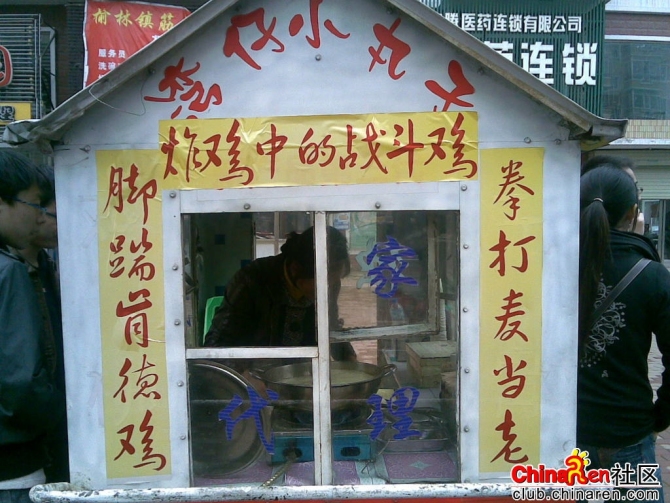 服务员
医药连锁有限公司
药连锁
小丸子
炸鸡中的战斗鸡
脚踹肯德鸡
拳打麦当老
家
代理
ChinaRen社区
club.chinaren.com